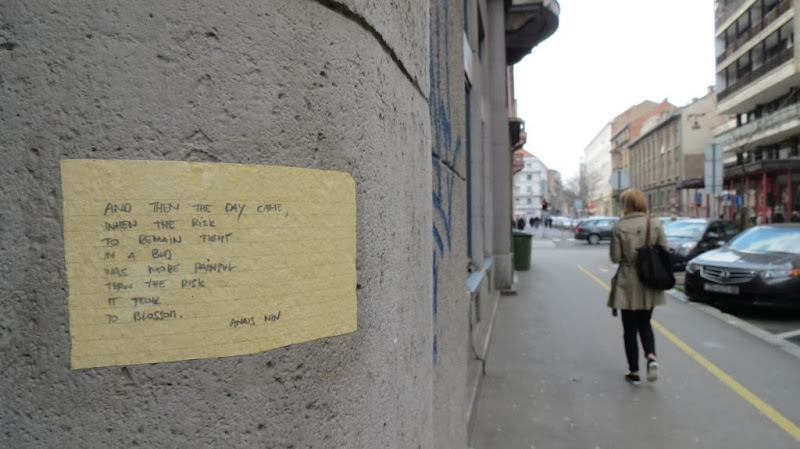 AND THEN THE DAY CAME,
WHEN THE RISK
TO REMAIN TIGHT
IN A BUD
WAS MORE PAINFUL
THAN THE RISK
IT TOOK
TO BLOSSOM.
ANAIS NIN